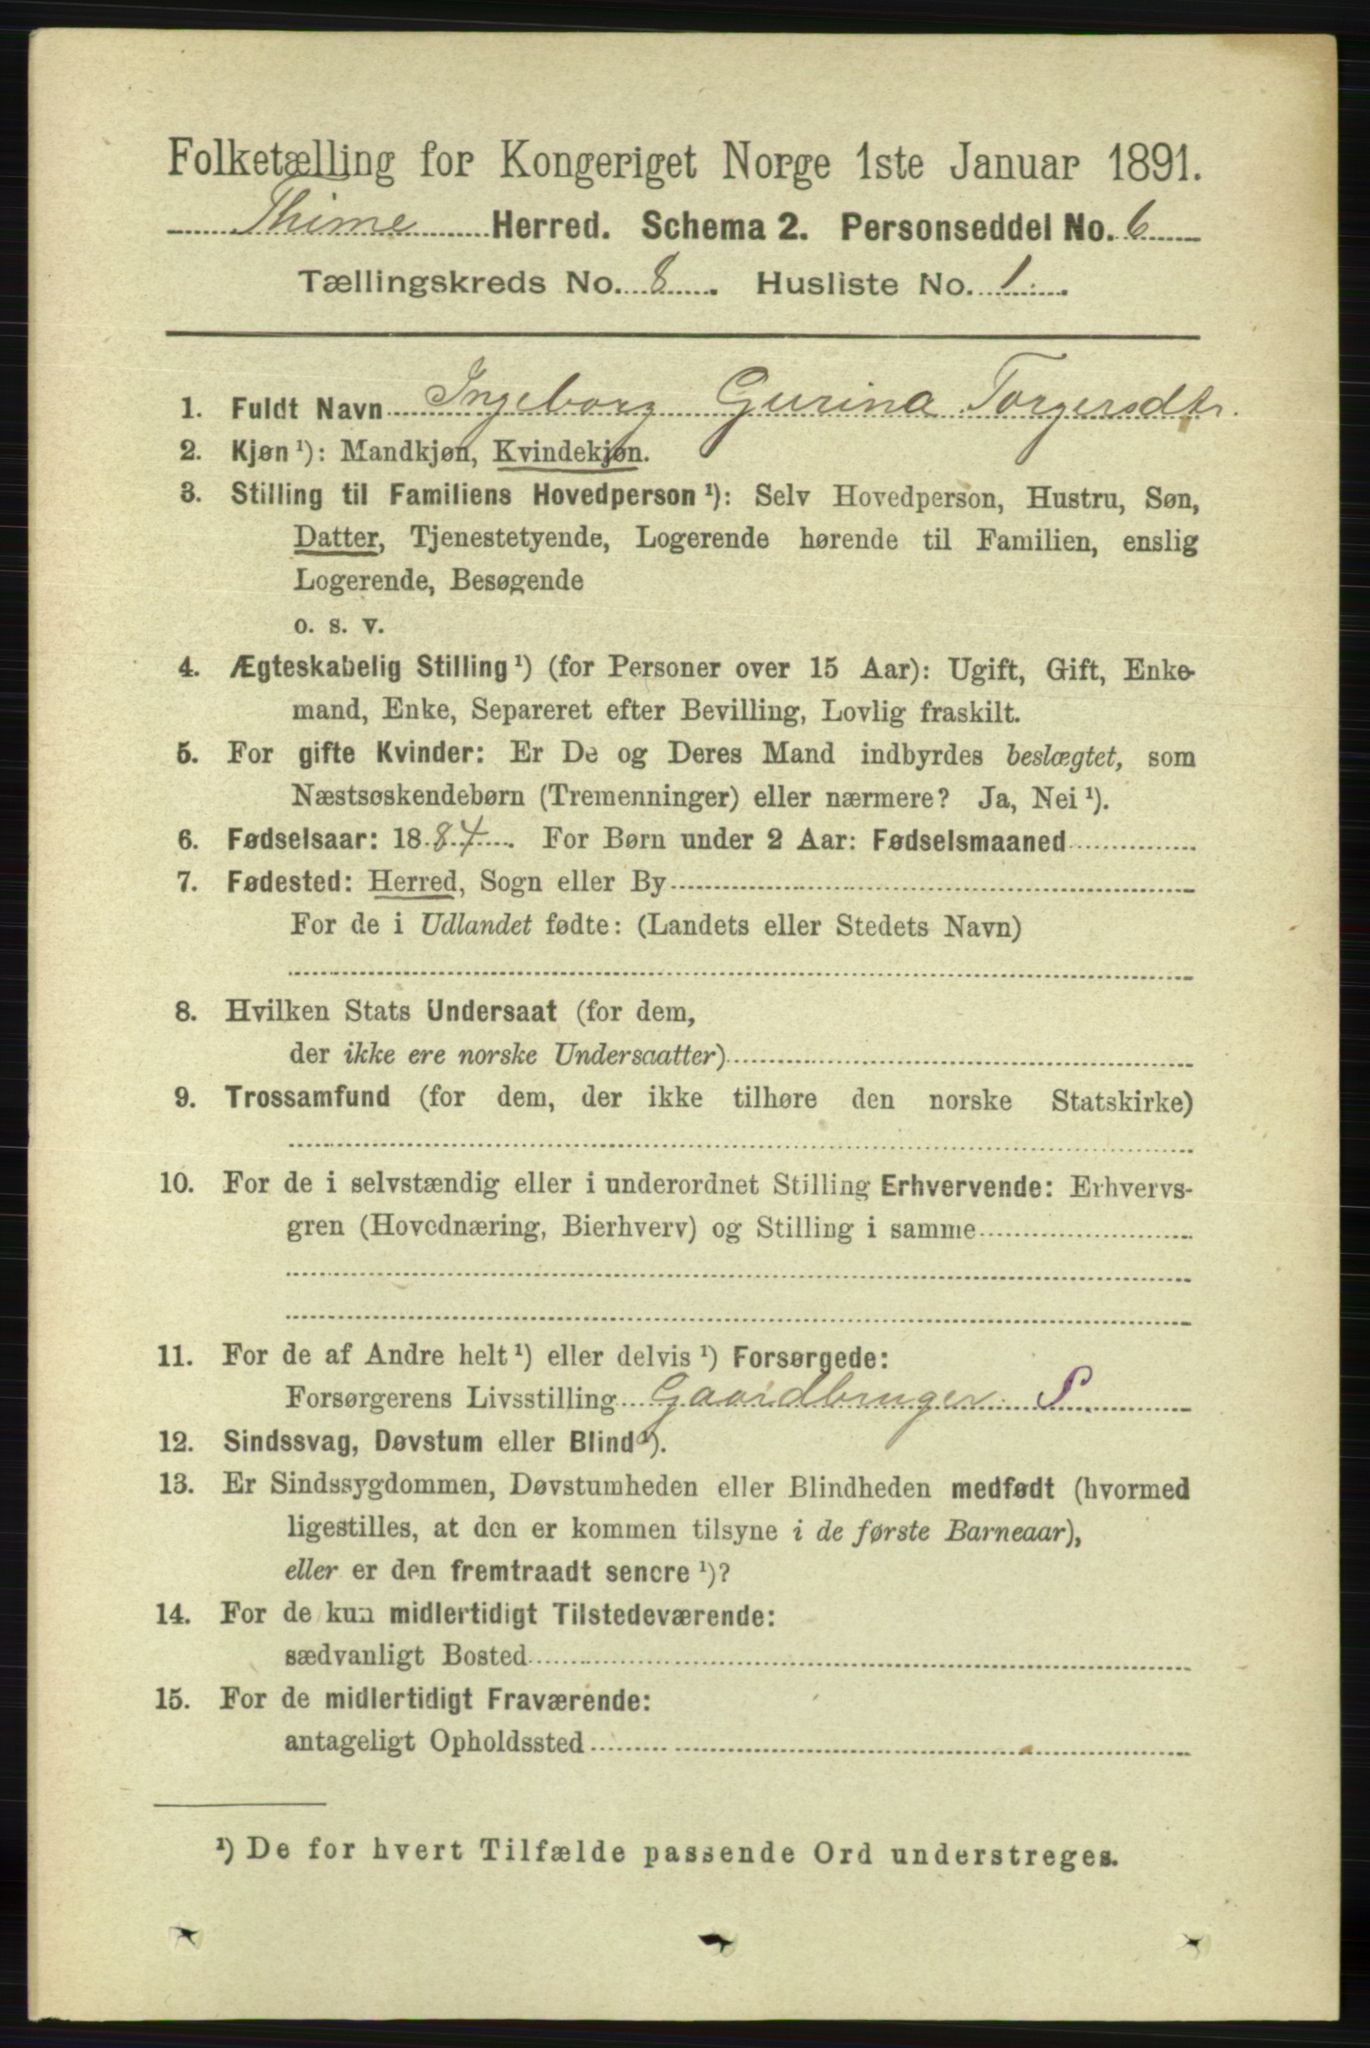 Folketælling for Kongeriget Norge 1ste Januar 1891.
Thime Herred. Schema 2. Personseddel No. 6
Tællingskreds No. 8. Husliste No. 1.
1. Fuldt Navn Ingeborg Gurina Torgersdtr.
2. Kjøn ¹): Mandkjøn, Kvindekjøn.
3. Stilling til Familiens Hovedperson ¹): Selv Hovedperson, Hustru, Søn,
Datter, Tjenestetyende, Logerende hørende til Familien, enslig
Logerende, Besøgende
o. s. v.
4. Ægteskabelig Stilling ¹) (for Personer over 15 Aar): Ugift, Gift, Enke-
mand, Enke, Separeret efter Bevilling, Lovlig fraskilt.
5. For gifte Kvinder: Er De og Deres Mand indbyrdes beslægtet, som
Næstsøskendebørn (Tremenninger) eller nærmere? Ja, Nei ¹).
6. Fødselsaar: 1884. For Børn under 2 Aar: Fødselsmaaned
7. Fødested: Herred, Sogn eller By
For de i Udlandet fødte: (Landets eller Stedets Navn)
8. Hvilken Stats Undersaat (for dem,
der ikke ere norske Undersaatter)
9. Trossamfund (for dem, der ikke tilhøre den norske Statskirke)
10. For de i selvstændig eller i underordnet Stilling Erhvervende: Erhvervs-
gren (Hovednæring, Bierhverv) og Stilling i samme
11. For de af Andre helt ¹) eller delvis ¹) Forsørgede:
Forsørgerens Livsstilling Gaardbruger S.
12. Sindssvag, Døvstum eller Blind ¹).
13. Er Sindssygdommen, Døvstumheden eller Blindheden medfødt (hvormed
ligestilles, at den er kommen tilsyne i de første Barneaar),
eller er den fremtraadt senere ¹)?
14. For de kun midlertidigt Tilstedeværende:
sædvanligt Bosted
15. For de midlertidigt Fraværende:
antageligt Opholdssted
¹) De for hvert Tilfælde passende Ord understreges.